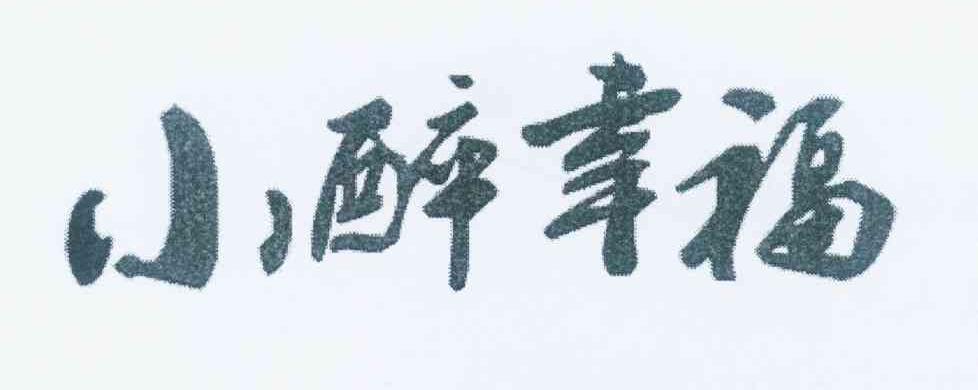 小醉幸福